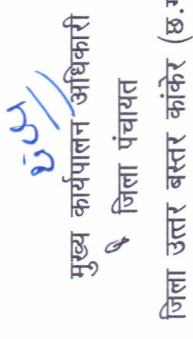 मुख्य कार्यपालन अधिकारी
जिला पंचायत
जिला उत्तर बस्तर कांकेर (छ.ग